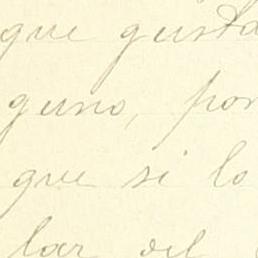 que gusta
guno, por
que si lo
lar del